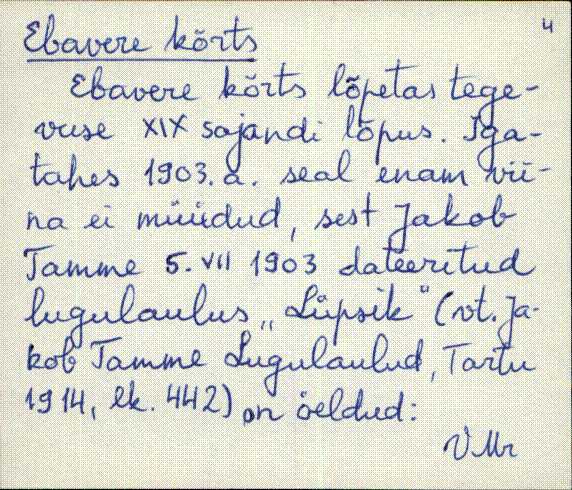 4
Ebavere kõrts
Ebavere kõrts lõpetas tege-
vuse XIX sajandi lõpus. Iga-
tahes 1903. a. seal enam vii-
na ei müüdud, sest Jakob
Tamme 5. VII 1903 dateeritud
lugulaulus „Lüpsik" (vt. Ja-
kob Tamme Lugulaulud, Tartu
1914, lk. 442) on öeldud: